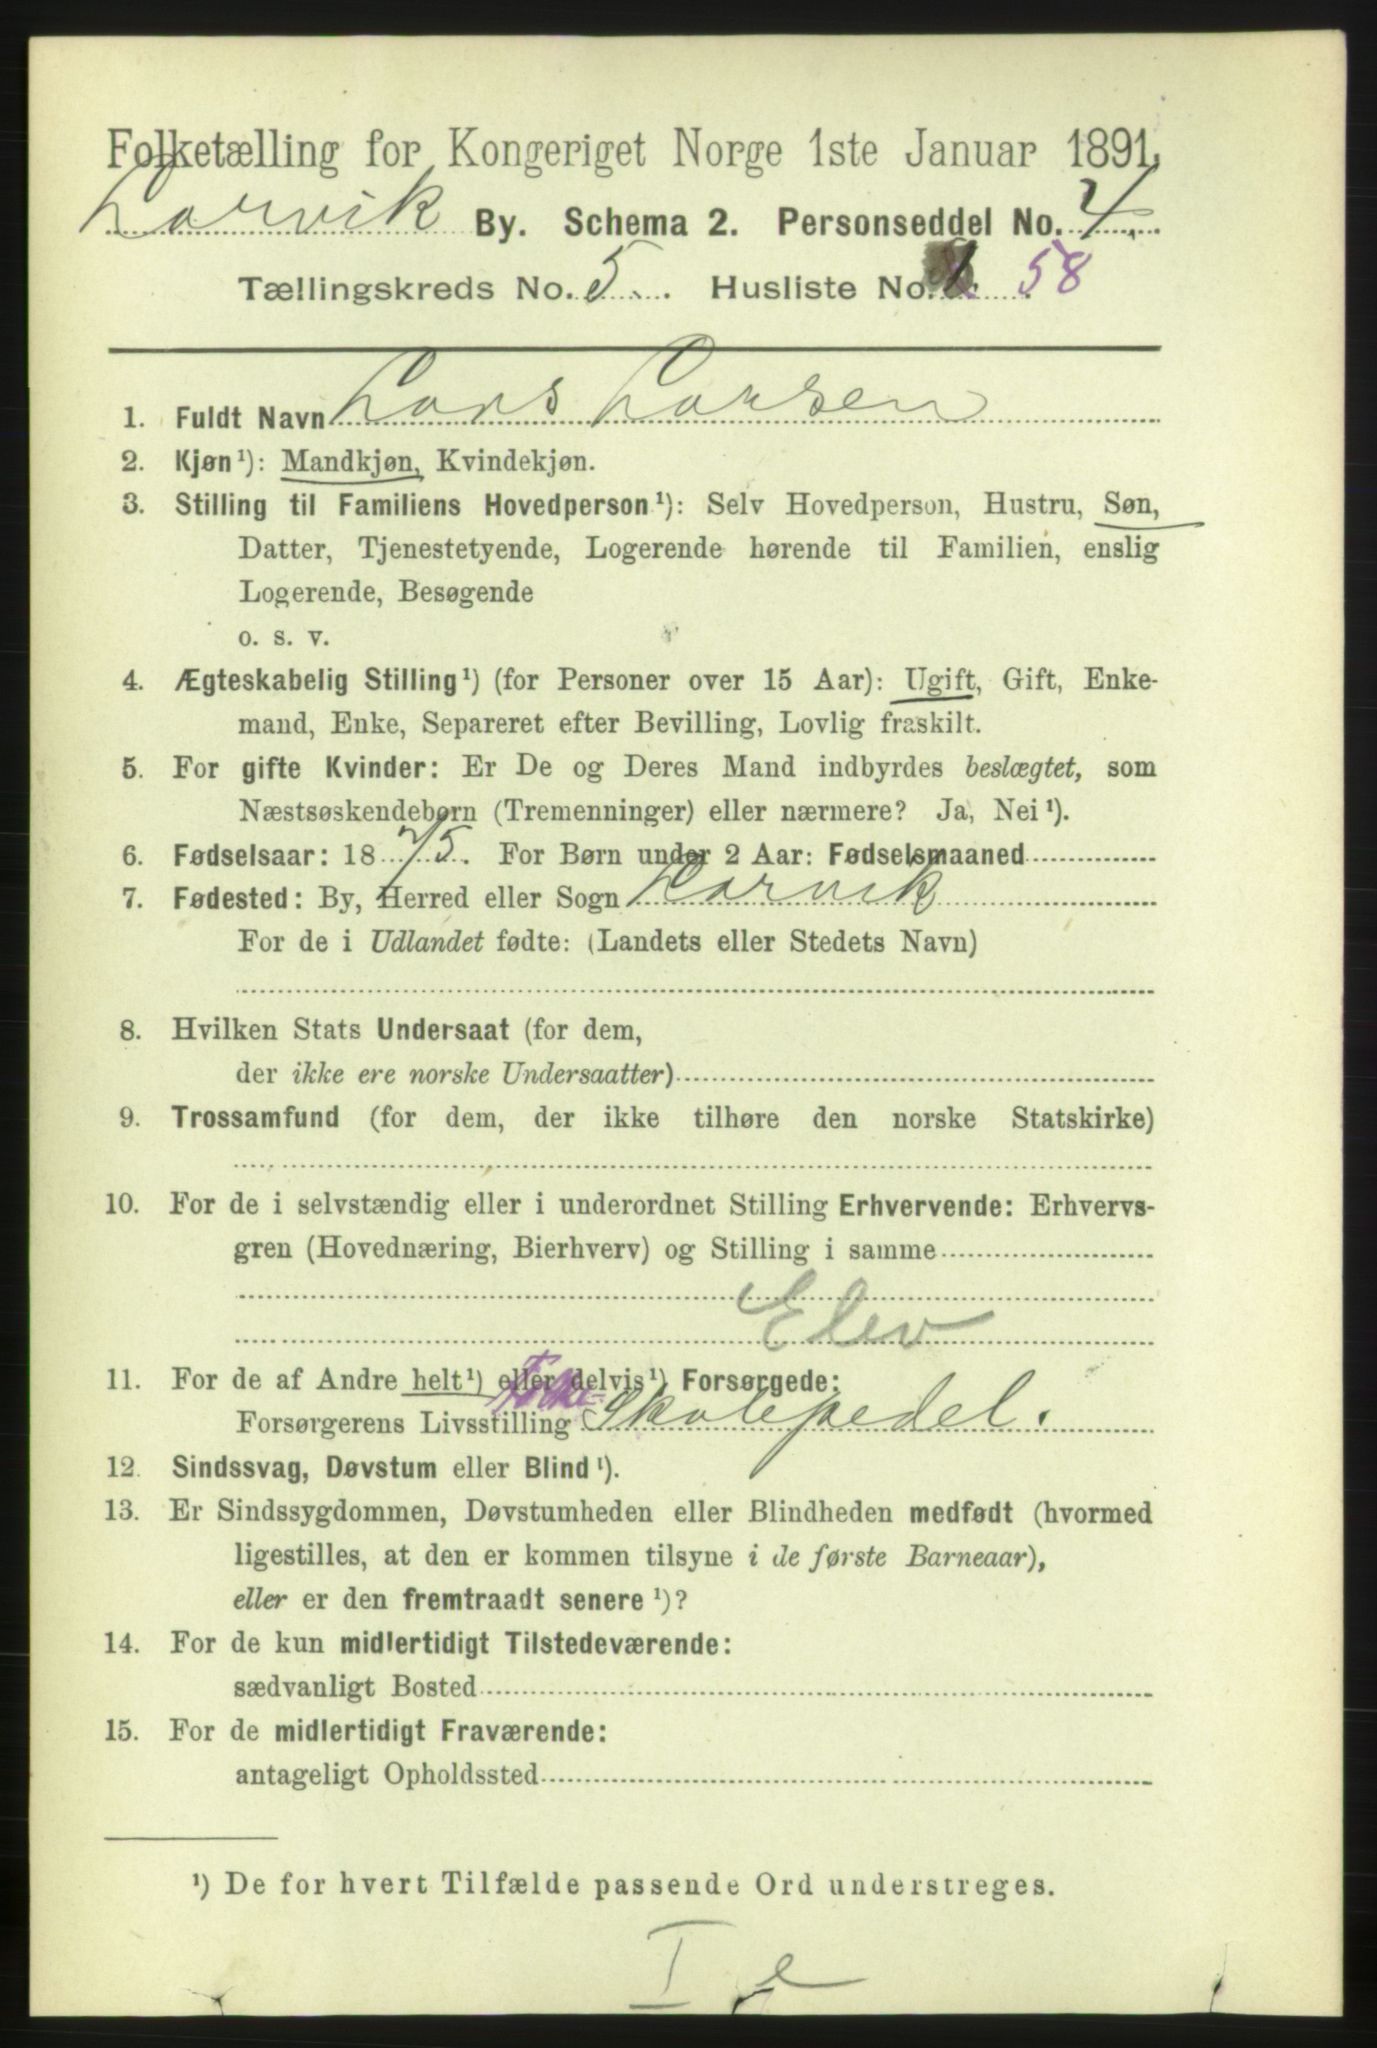 Folketælling for Kongeriget Norge 1ste Januar 1891.
Larvik By. Schema 2. Personseddel No. 4
Tællingskreds No. 5. Husliste No. 58
1. Fuldt Navn Lars Larsen
2. Kjøn¹): Mandkjøn, Kvindekjøn.
3. Stilling til Familiens Hovedperson¹): Selv Hovedperson, Hustru, Søn,
Datter, Tjenestetyende, Logerende hørende til Familien, enslig
Logerende, Besøgende
o. s. v.
4. Ægteskabelig Stilling¹) (for Personer over 15 Aar): Ugift, Gift, Enke-
mand, Enke, Separeret efter Bevilling, Lovlig fraskilt.
5. For gifte Kvinder: Er De og Deres Mand indbyrdes beslægtet, som
Næstsøskendebørn (Tremenninger) eller nærmere? Ja, Nei¹).
6. Fødselsaar: 1875. For Børn under 2 Aar: Fødselsmaaned
7. Fødested: By, Herred eller Sogn Larvik
For de i Udlandet fødte: (Landets eller Stedets Navn)
8. Hvilken Stats Undersaat (for dem,
der ikke ere norske Undersaatter)
9. Trossamfund (for dem, der ikke tilhøre den norske Statskirke)
10. For de i selvstændig eller i underordnet Stilling Erhvervende: Erhvervs-
gren (Hovednæring, Bierhverv) og Stilling i samme
Elev
11. For de af Andre helt¹) eller delvis¹) Forsørgede:
Forsørgerens Livsstilling Folke=Skolepedel.
12. Sindssvag, Døvstum eller Blind¹).
13. Er Sindssygdommen, Døvstumheden eller Blindheden medfødt (hvormed
ligestilles, at den er kommen tilsyne i de første Barneaar),
eller er den fremtraadt senere¹)?
14. For de kun midlertidigt Tilstedeværende:
sædvanligt Bosted
15. For de midlertidigt Fraværende:
antageligt Opholdssted
¹) De for hvert Tilfælde passende Ord understreges.
I e